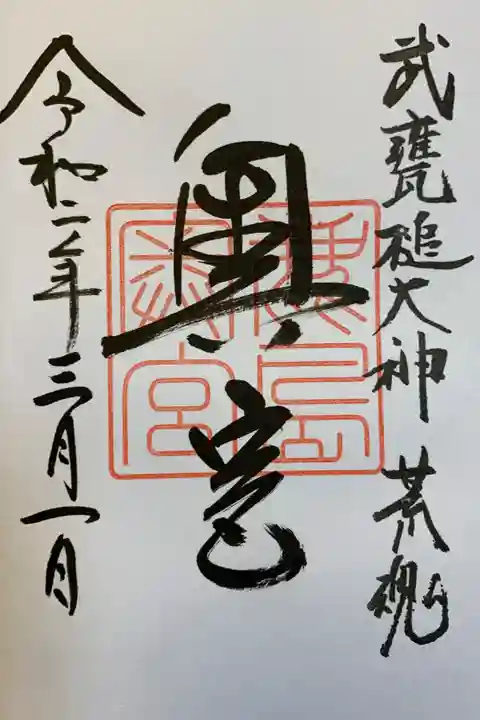 武甕槌大神 荒魂
奥宮
鹿島奥宮
令和二年三月一日